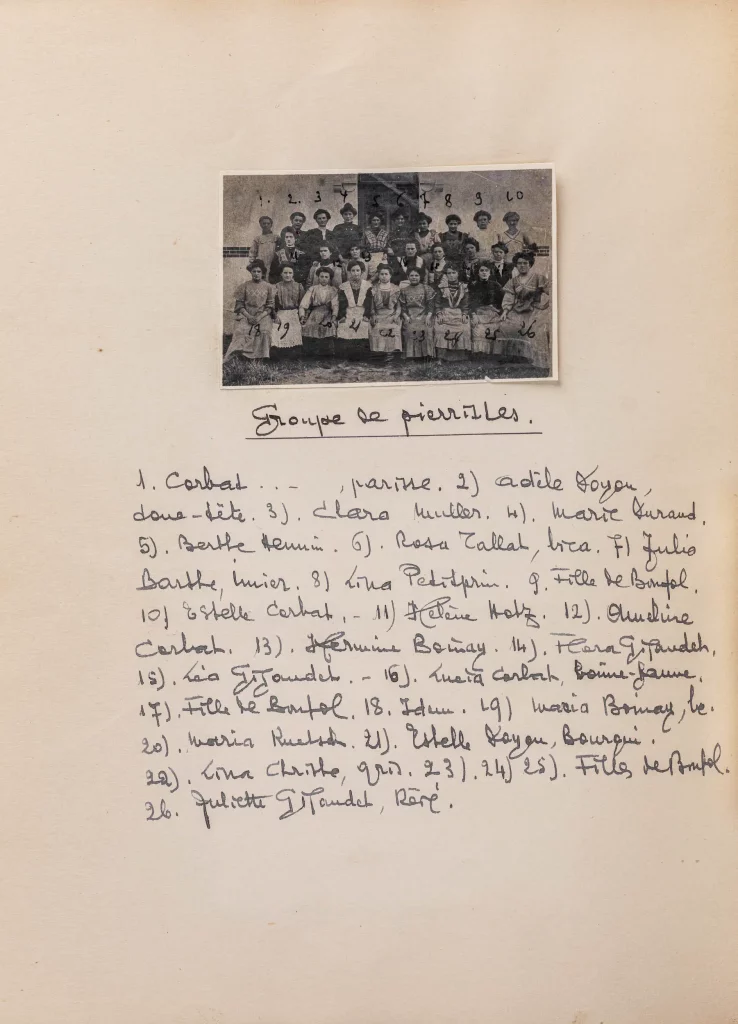 1. 2. 3 4 5 6 7 8 9 10
18 19 20 21 22 23 24 25 26
Groupe de pierristes.
1. Corbat . . - , parisse. 2) Adèle Doyon,
3). Clara Muller. 4). Marie Durand.
5). Berthe Hennin. 6). Rosa Tallat, 7) Julia
Barthe, Imier. 8) Lina Petitprin. 9. Fille de Bonfol.
10) Estelle Corbat, - 11) Hélène Hotz. 12). Ameline
Corbat. 13). Hermine Boinay. 14). Flora Gigandet.
15). Léa Gigandet. - 16). Lucia Corbat, bonne-femme.
17). Fille de Bonfol. 18. Idem. 19) Maria Boinay, be.
20). Maria Kuetsch. 21). Estelle Doyon, Bourqui.
22). Lina Christe, gris. 23). 24) 25). Filles de Bonfol.
26. Juliette Gigandet, Réré.